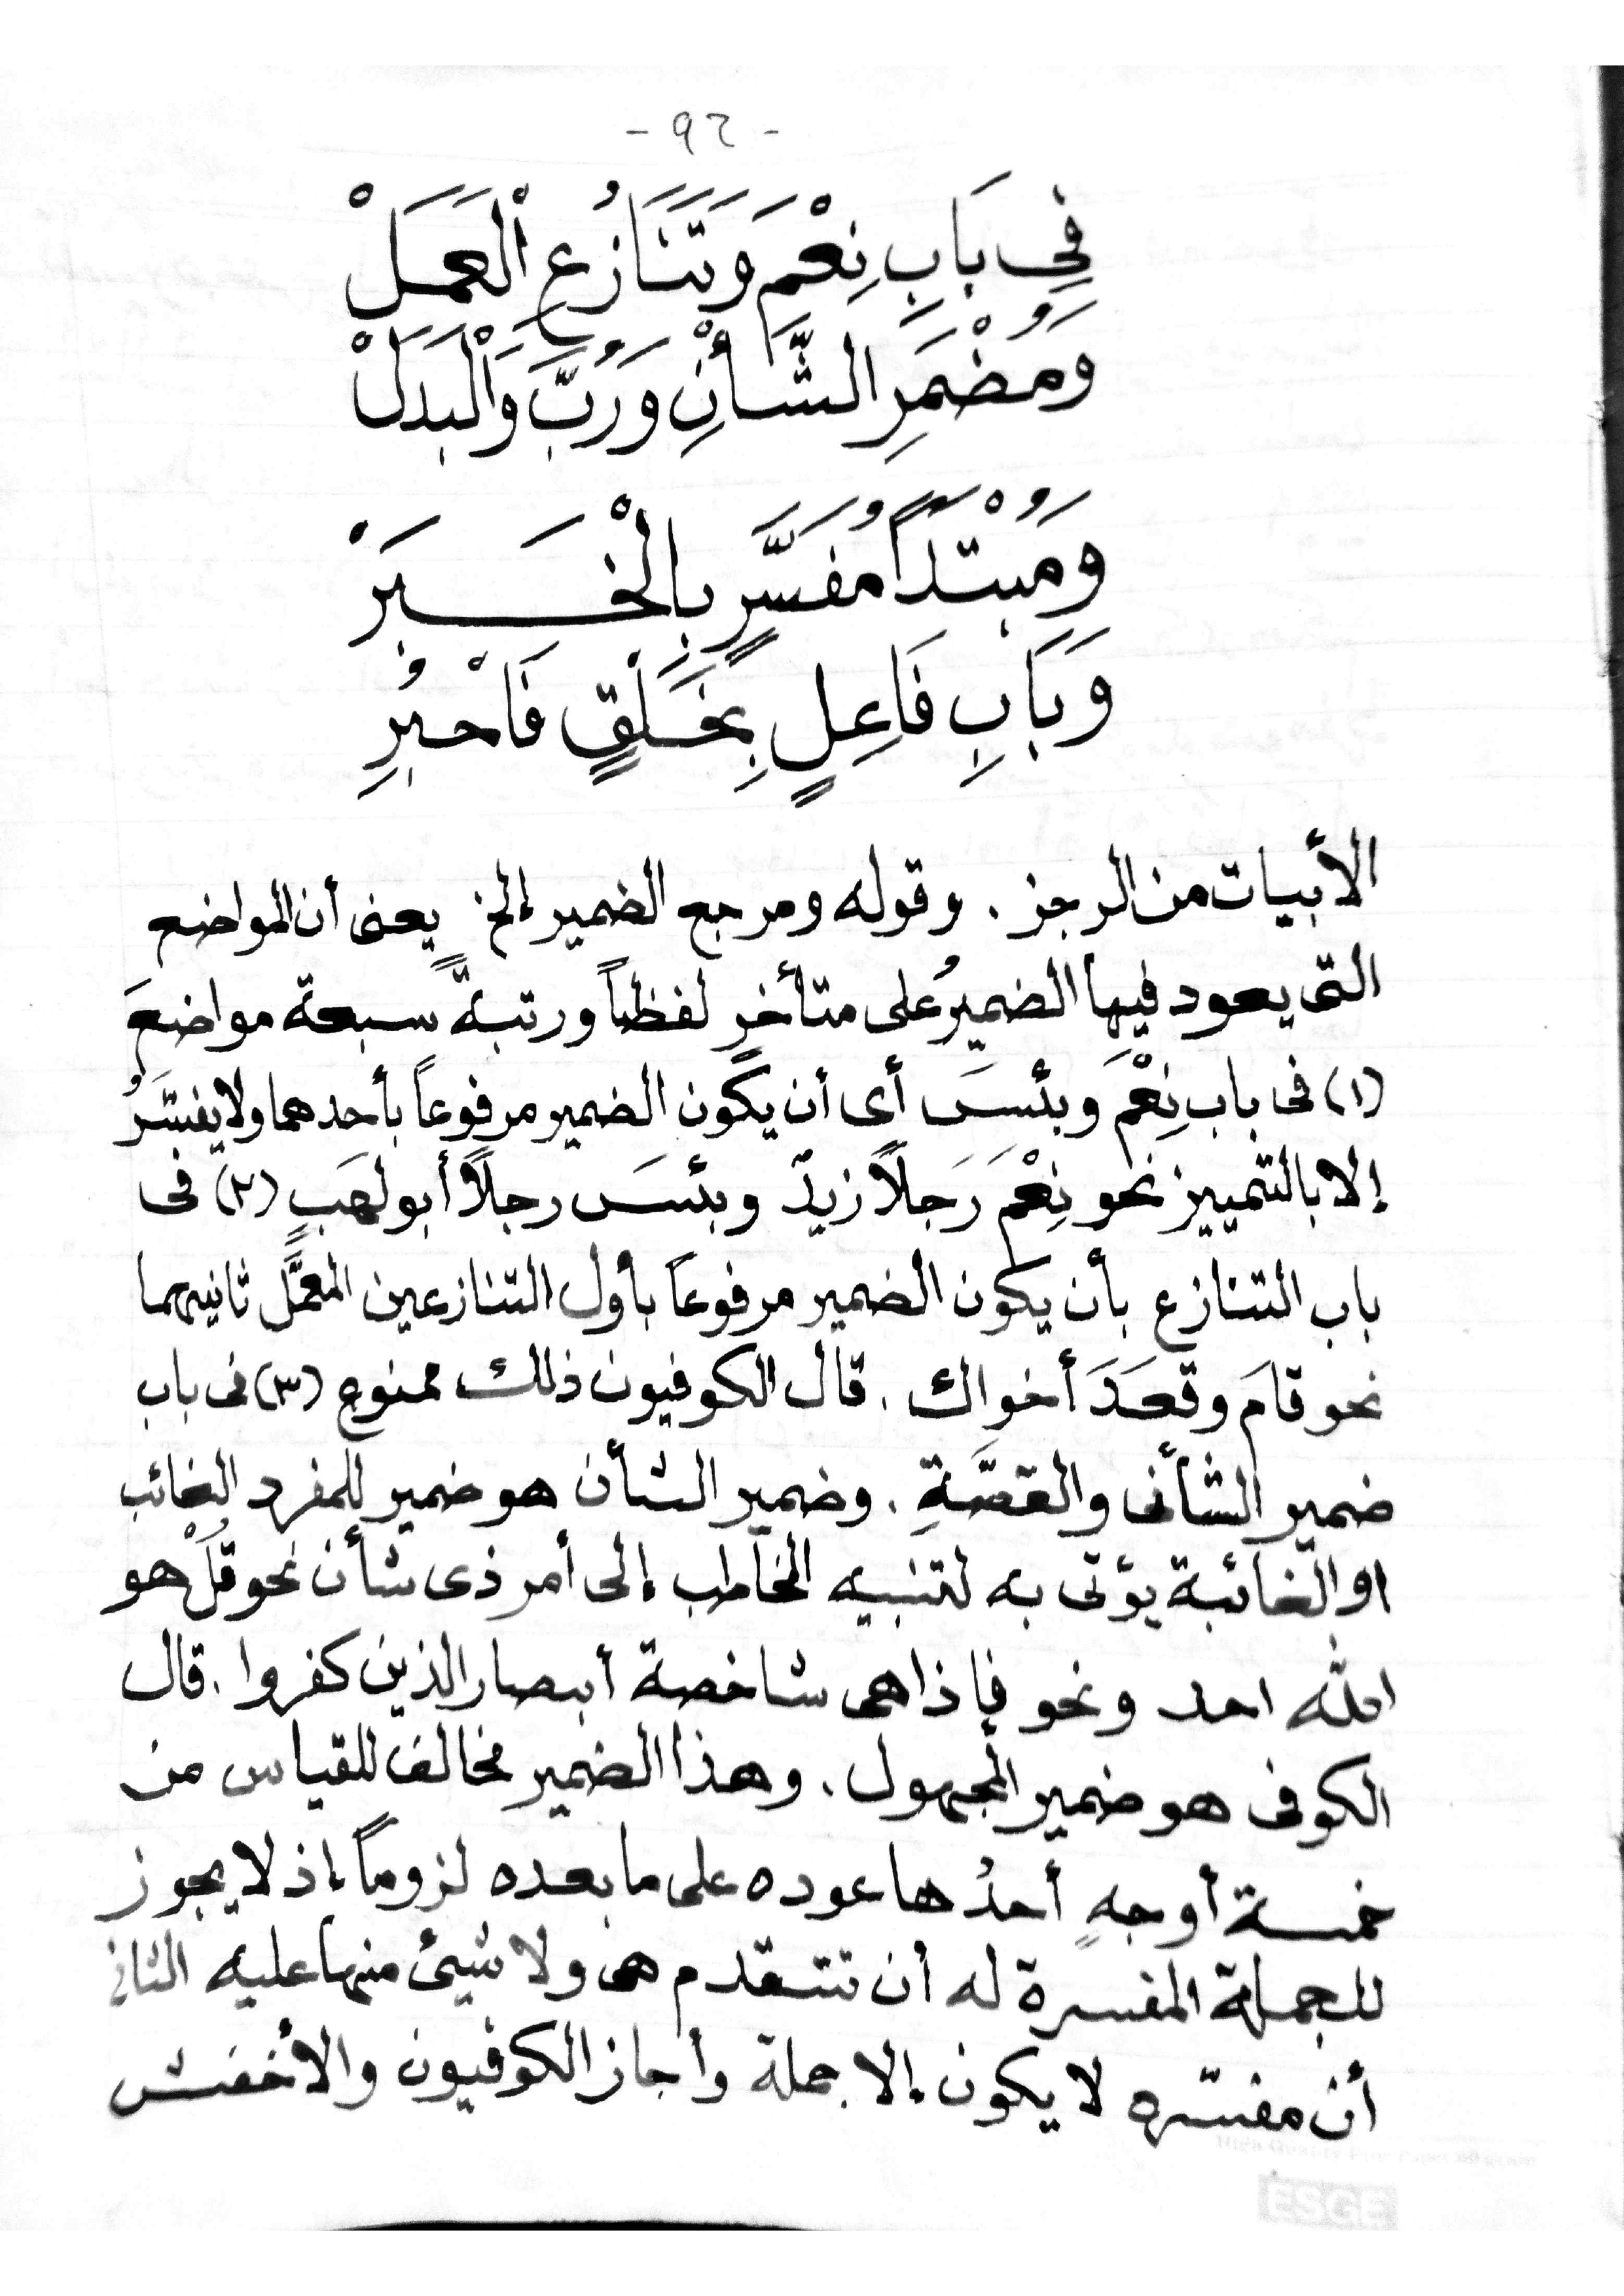 - ٩٢ -
فِي بَابِ نِعْمَ وَتَنَازُعِ الْعَمَلْ
وَمُضْمَرِ الشَّأْنِ وَرُبَّ وَالْبَدَلْ
وَمُبْتَدًا مُفَسَّرٍ بِالْخَبَرْ
وَبَابِ فَاعِلٍ بِخَلْقٍ فَاخْبُرِ
الأبيات من الرجز . وقوله ومرجع الضمير إلخ يعنى أن المواضع
التى يعود فيها الضميرُ على متأخرٍ لفظاً ورتبةً سبعة مواضعَ
(١) فى باب نِعْمَ وبئسَ أى أن يكون الضمير مرفوعاً بأحدهما ولا يفسَّرُ
إلا بالتمييز نحو نِعْمَ رَجلاً زيدٌ وبئسَ رجلاً أبو لهَبٍ (٢) فى
باب التنازع بأن يكون الضمير مرفوعاً بأول التنازعين المعمَّل ثانيهما
نحو قامَ وقعَدَ أخواك . قال الكوفيون ذلك ممنوع (٣) فى باب
ضمير الشأنى والقصَّةِ . وضمير الشأن هو ضمير للمفرد الغائب
او الغائبة يؤتى به لتنبيه المخاطب إلى أمر ذى شأن نحو قُلْ هو
الله احد ونحو فإذا هى شاخصة أبصار الذين كفروا . قال
الكوفى هو ضمير المجهول . وهذا الضمير مخالف للقياس من
خمسة أوجهٍ أحدُها عوده على ما بعده لزوماً إذ لا يجوز
للجملة المفسرة له أن تتقدم هى ولا شيئ منها عليه الثانى
أن مفسّره لا يكون إلا جملة وأجاز الكوفيون والأخفش
ESGE